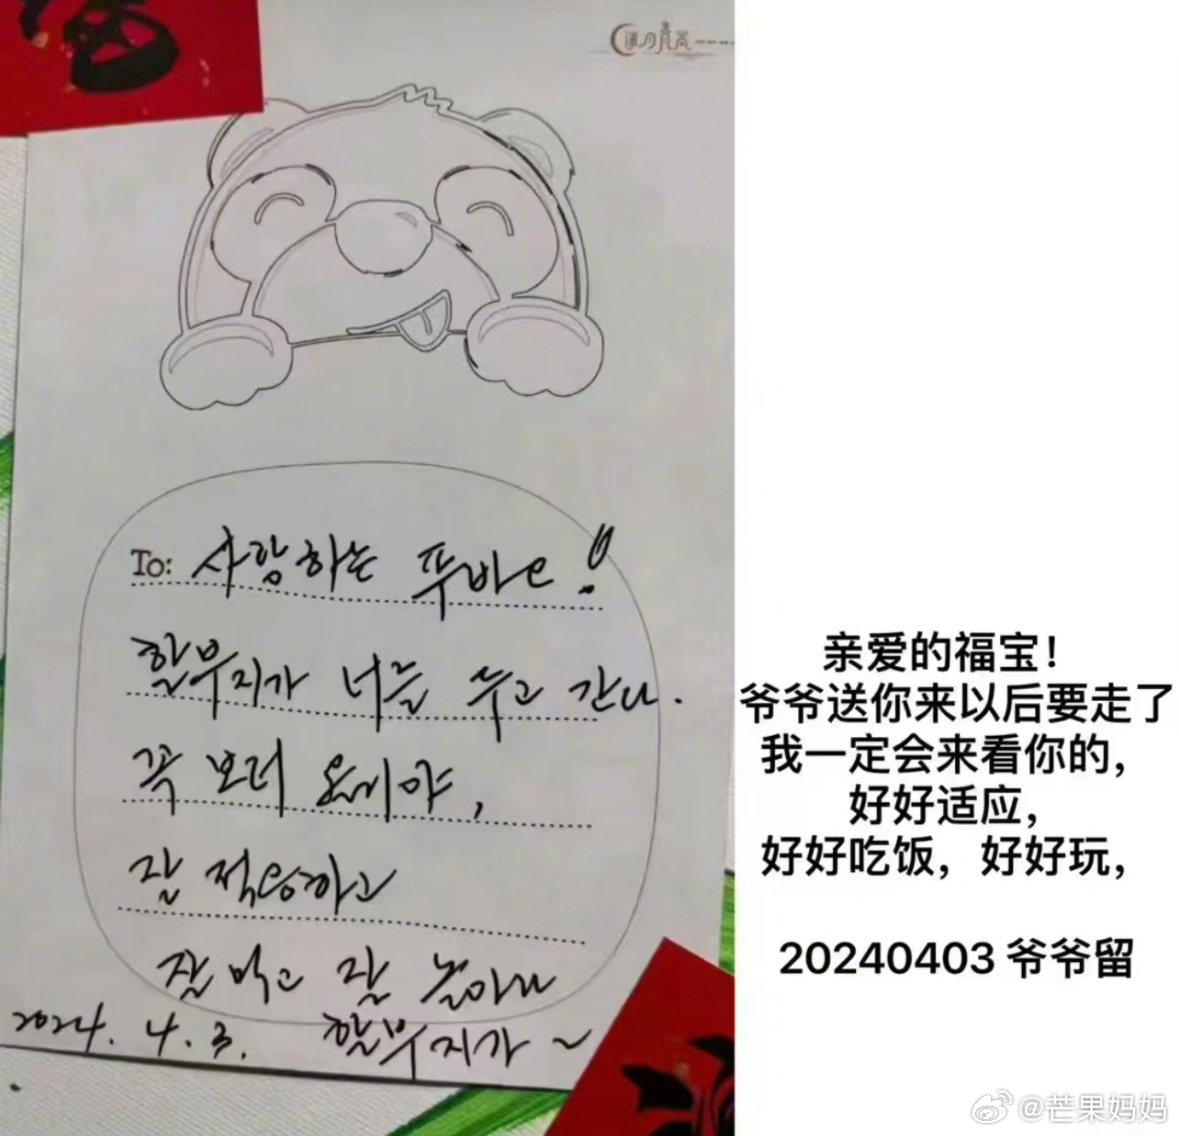 To: 사랑하는 푸바오!
할부지가 너를 두고 간다.
꼭 보러 올테야,
잘 적응하고
잘 먹고 잘 놀아라
2024. 4. 3. 할부지가~
亲爱的福宝！
爷爷送你来以后要走了
我一定会来看你的，
好好适应，
好好吃饭，好好玩，
20240403 爷爷留
@芒果妈妈